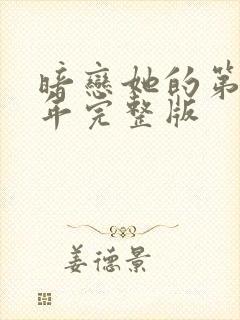 暗戀她的第
年完整版
姜德景